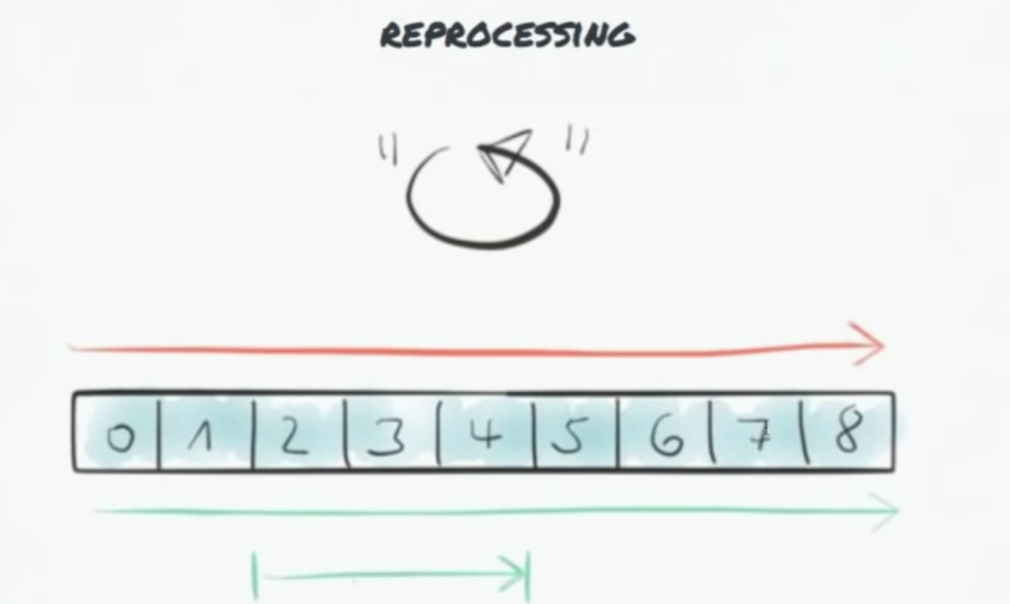 REPROCESSING
" "
0 1 2 3 4 5 6 7 8